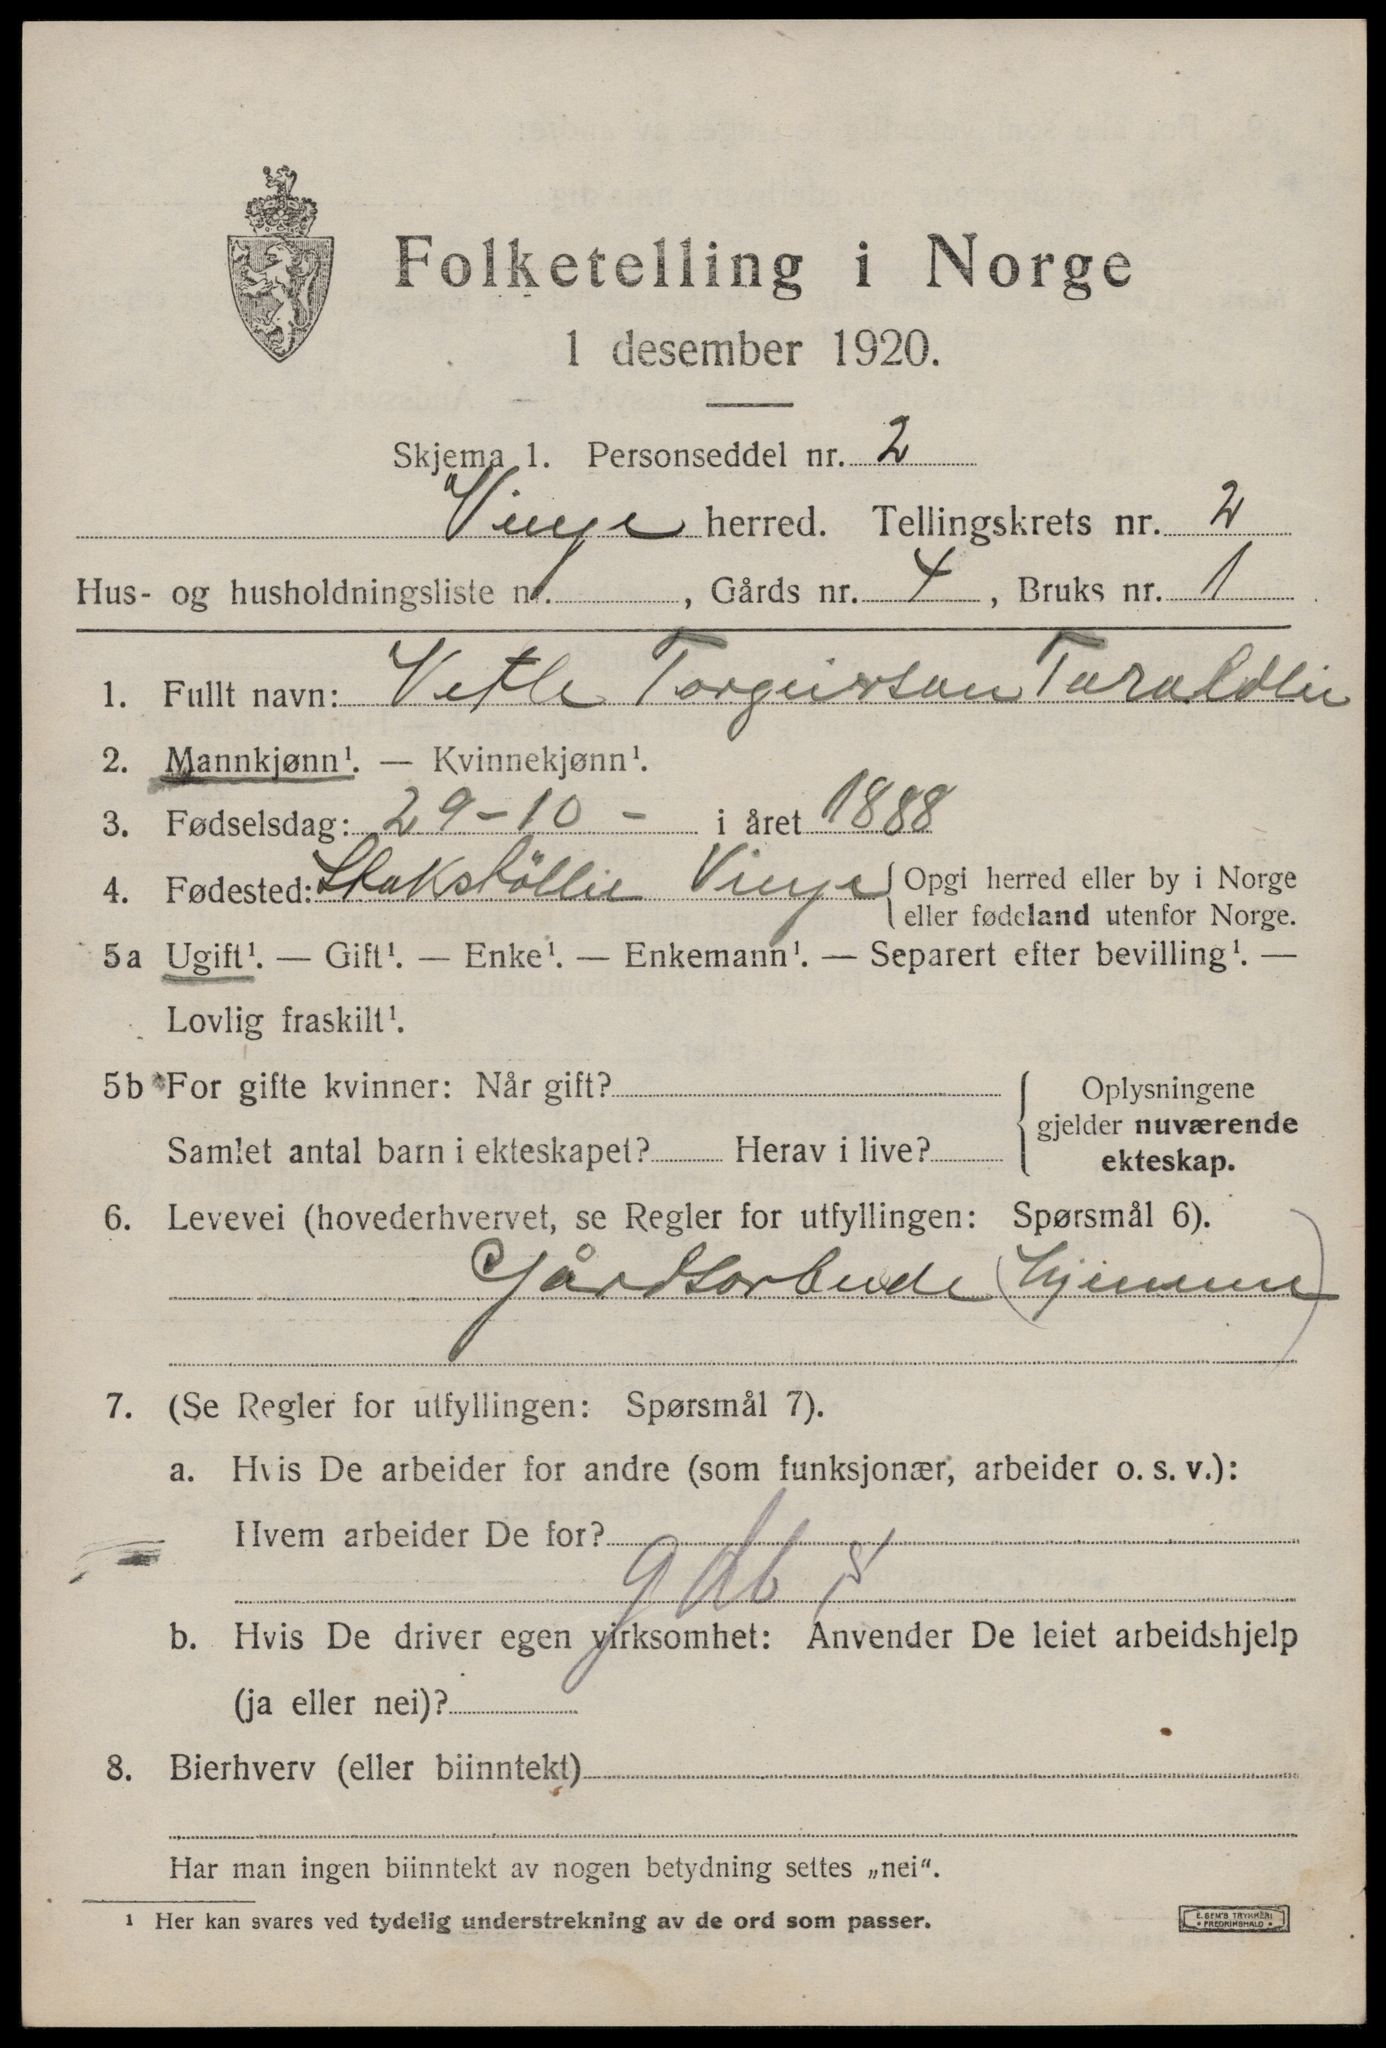 Folketelling i Norge
1 desember 1920.
Skjema 1. Personseddel nr. 2
Vinje herred. Tellingskrets nr. 2
Hus- og husholdningsliste nr. , Gårds nr. 4, Bruks nr. 1
1. Fullt navn: Vetle Torgeirson Taraldlie
2. Mannkjønn¹. — Kvinnekjønn¹.
3. Fødselsdag: 29-10- i året 1888
4. Fødested: Vinje { Opgi herred eller by i Norge
eller fødeland utenfor Norge.
5a Ugift¹. — Gift¹. — Enke¹. — Enkemann¹. — Separert efter bevilling¹. —
Lovlig fraskilt¹.
5b For gifte kvinner: Når gift? { Oplysningene
gjelder nuværende
Samlet antal barn i ekteskapet? Herav i live? ekteskap.
6. Levevei (hovederhvervet, se Regler for utfyllingen: Spørsmål 6).
Gårdsarbeide (hjemme)
7. (Se Regler for utfyllingen: Spørsmål 7).
a. Hvis De arbeider for andre (som funksjonær, arbeider o. s. v.):
Hvem arbeider De for?
b. Hvis De driver egen virksomhet: Anvender De leiet arbeidshjelp
(ja eller nei)?
8. Bierhverv (eller biinntekt)
Har man ingen biinntekt av nogen betydning settes „nei“.
¹ Her kan svares ved tydelig understrekning av de ord som passer.
E. SEM'S TRYKKERI
FREDRIKSHALD